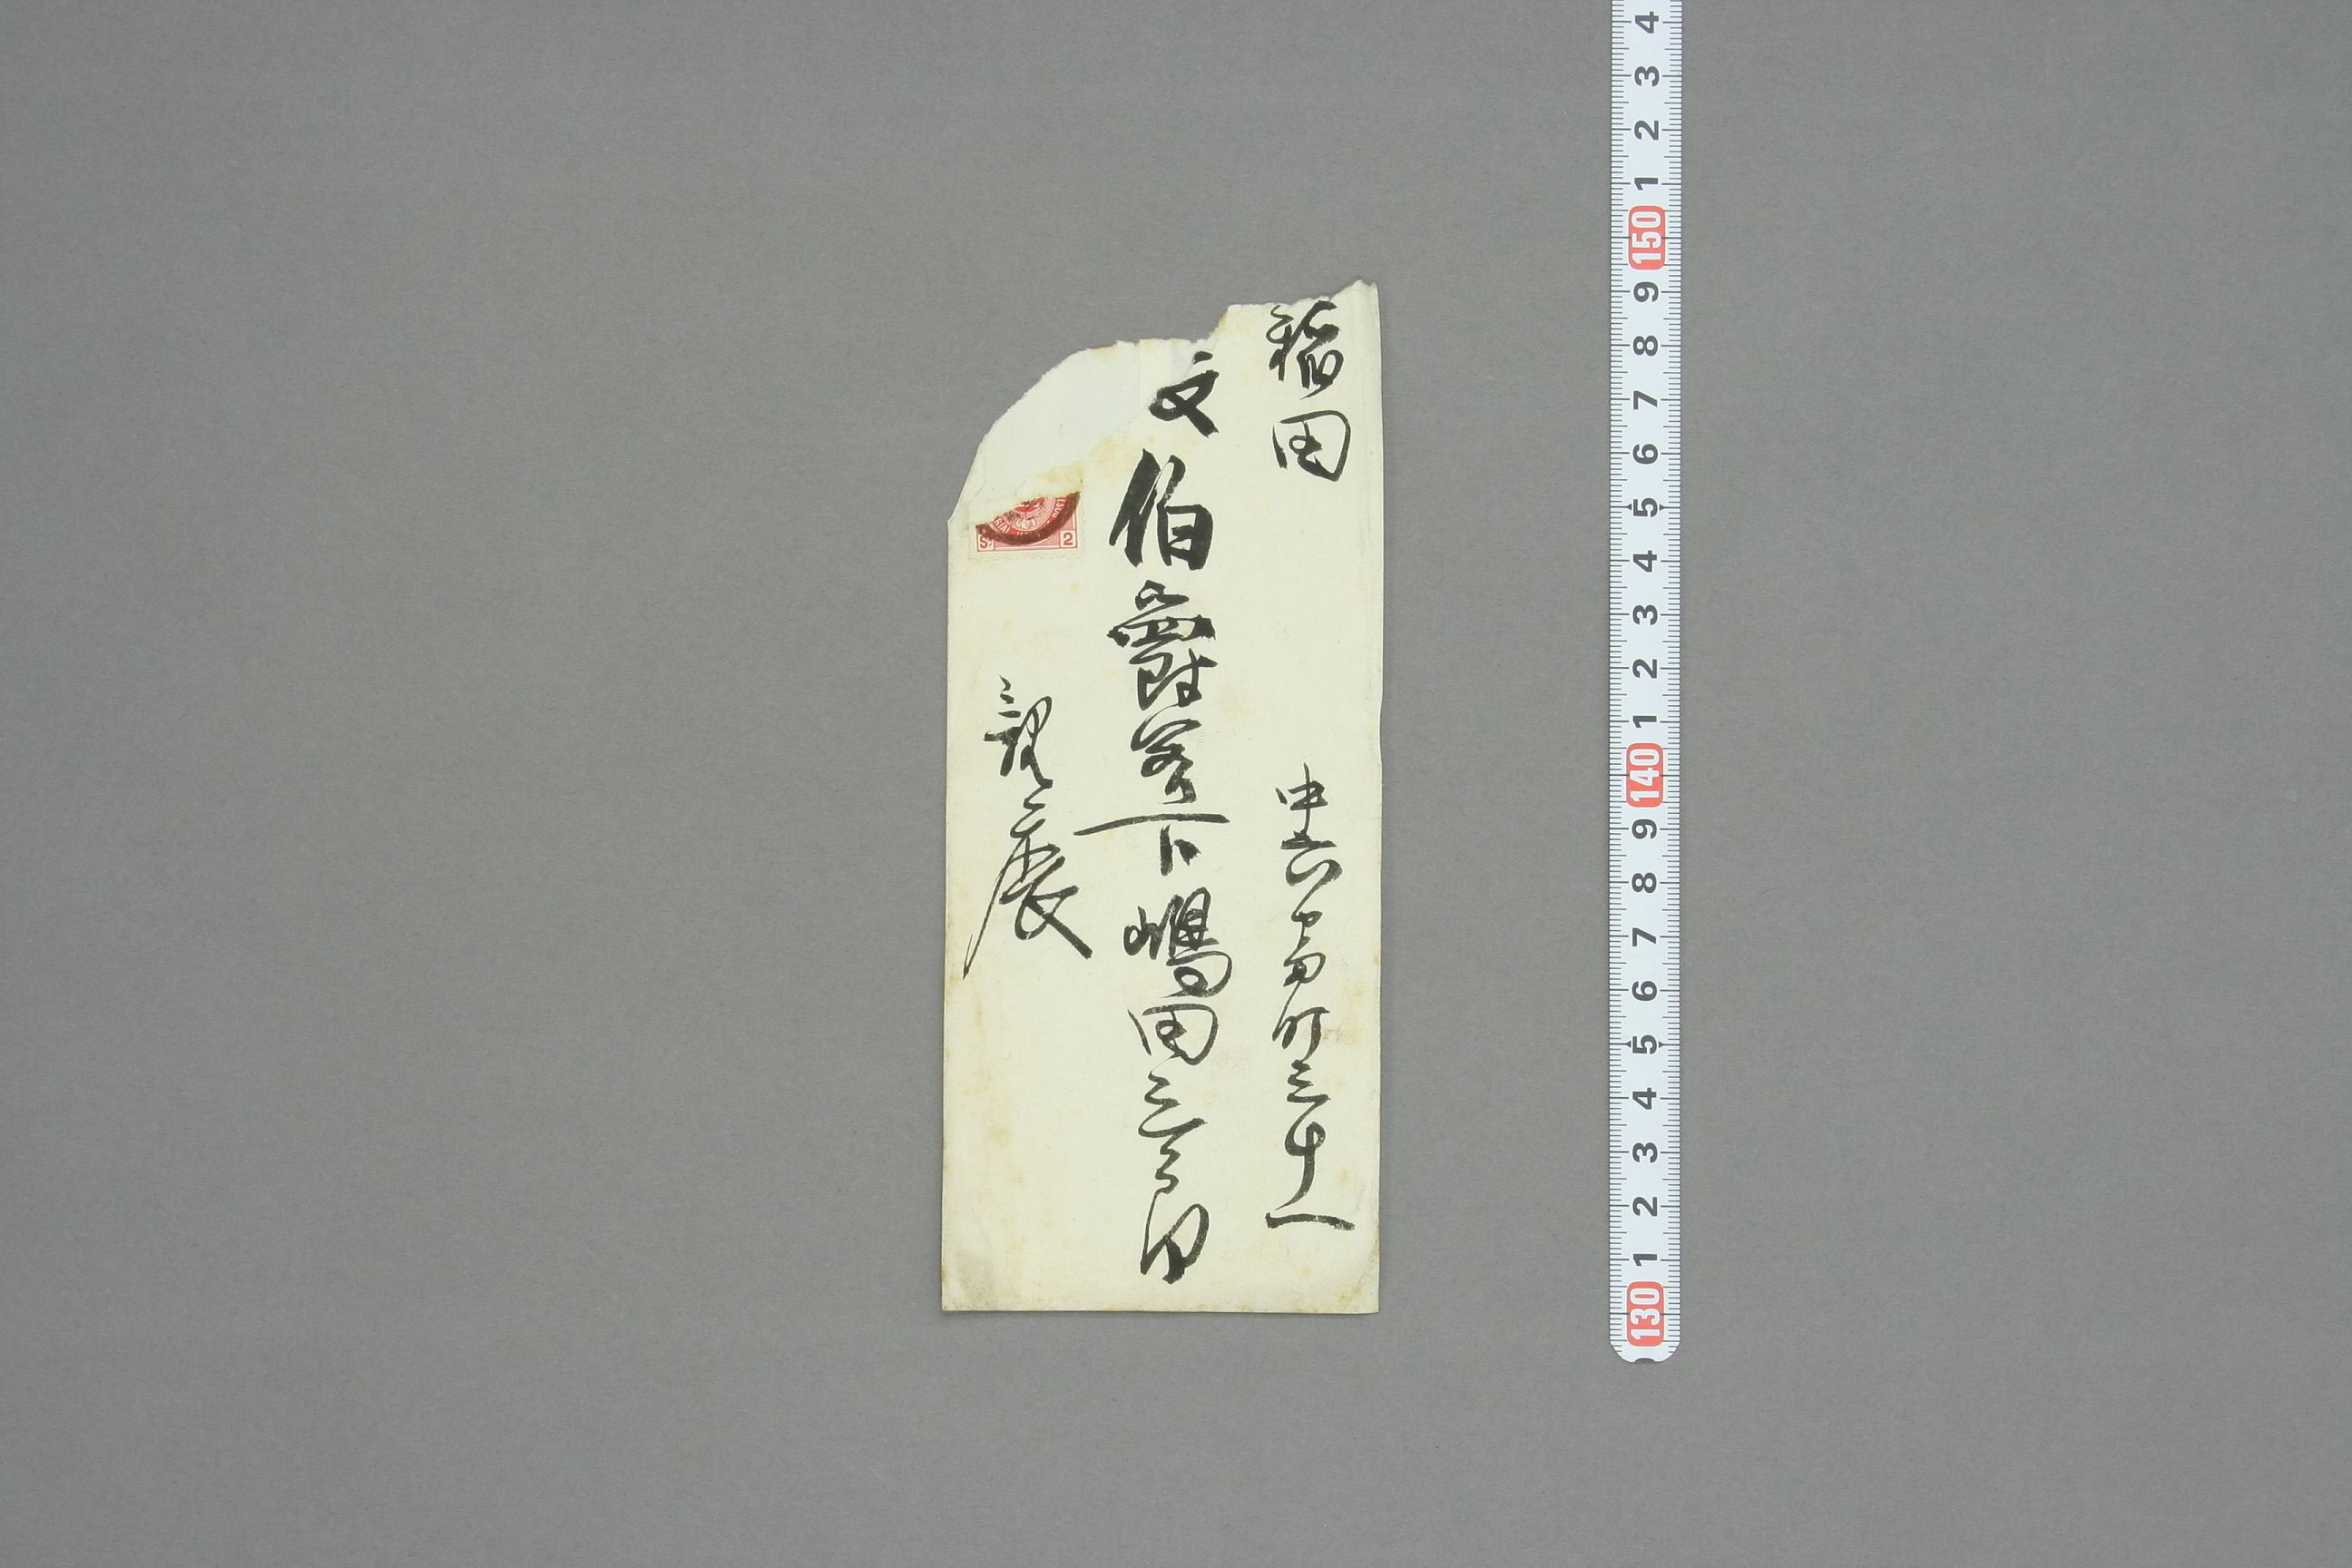 稲田
中六番町三十一
伯爵閣下
嶋田三郎
親展
2
4 3 2 1 150 9 8 7 6 5 4 3 2 1 140 9 8 7 6 5 4 3 2 1 130